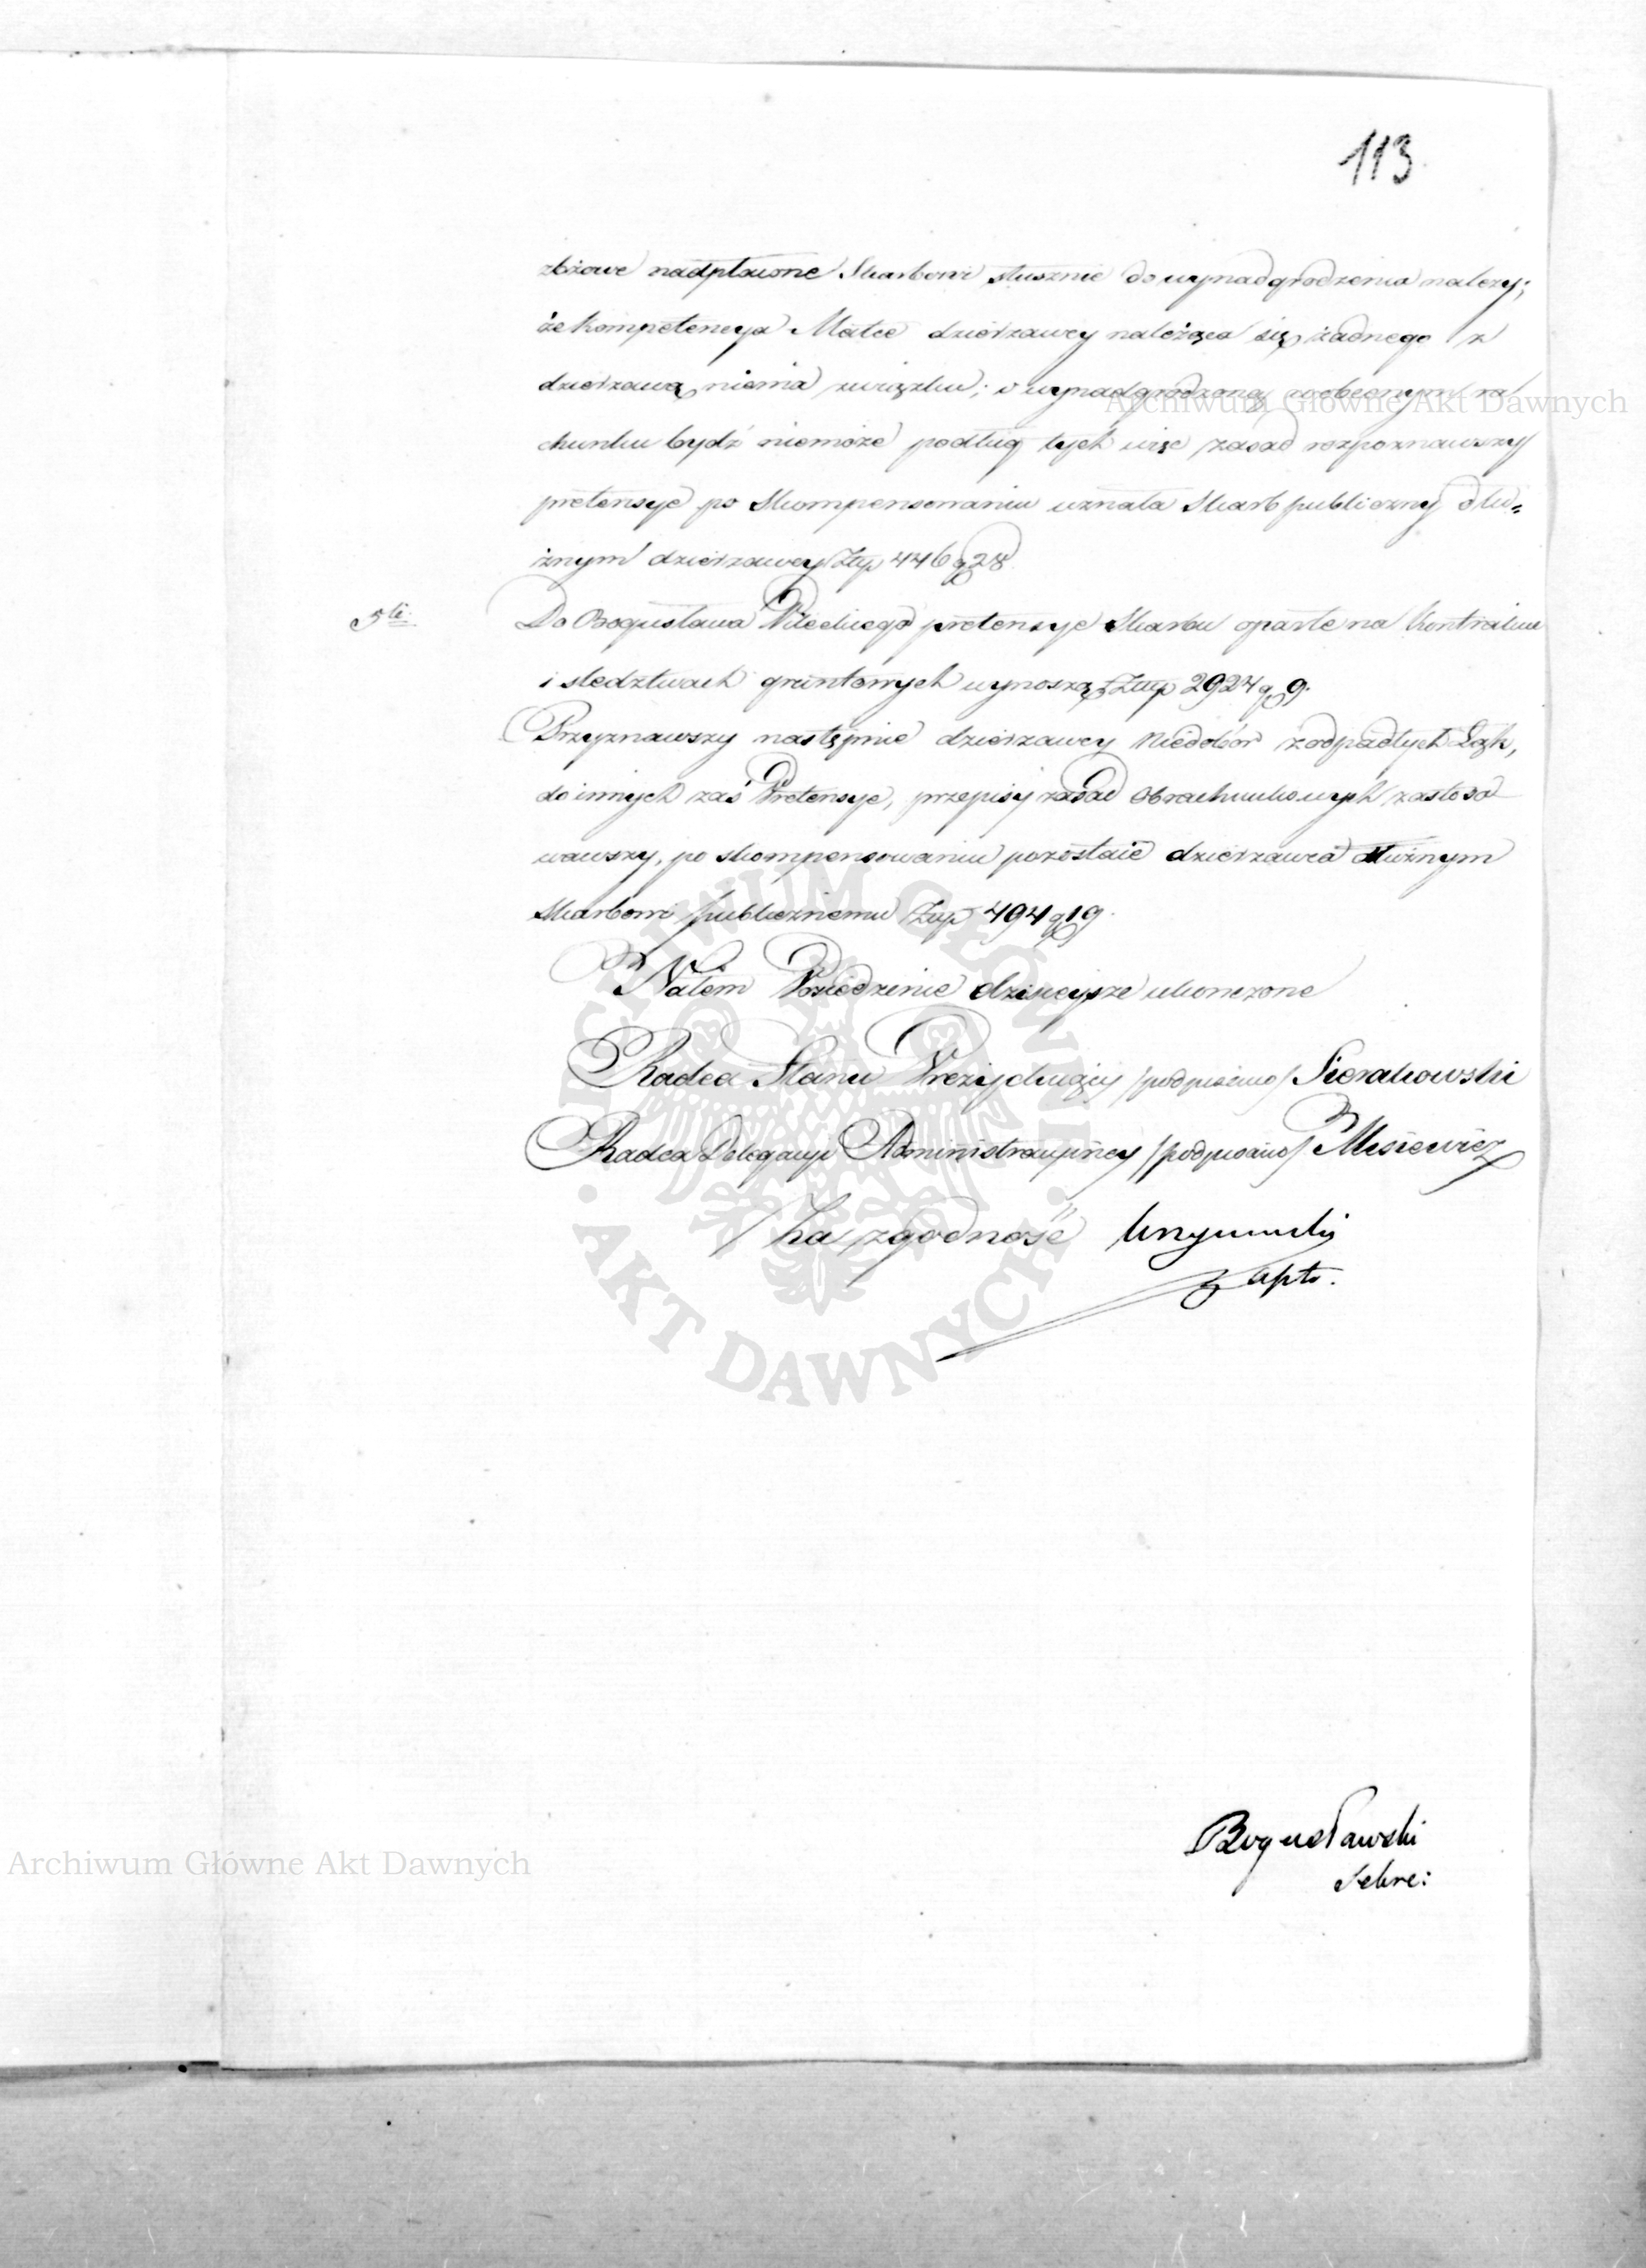 113
zbożowe nadpłacone Skarbowi słusznie do wynadgrodzenia należy;
że kompetencya Matce dzierzawcy należąca się, żadnego z
dzierzawą niema związku; i wynadgrodzoną w obecnym ra
Archiwum Główne Akt Dawnych
chunku bydź niemoże podług tych więc zasad rozpoznawszy
pretensye po skompensowaniu uznała Skarb publiczny dłu=
żnym dzierzawcy Złlp 446 g 28.
5te Do Bogusława pretensye Skarbu oparte na Kontrakcie
i sledztwach gruntowych wynoszą Złlp 2924 g 9.
Przyznawszy następnie dzierzawcy Niedobór z odpadłych Łąk,
do innych zaś Pretensye, przepisy zasad Obrachunkowych zastoso
wawszy, po skompensowaniu pozostaie dzierzawca dłużnym
Skarbowi publicznemu Złlp 494 g 19.
Natem Posiedzenie dzisieysze ukonczone
Radca Stanu Prezyduiący /podpisano/ Sierakowski
Radca Delegacyi Administracyiney /podpisano/ Misiewicz
Za zgodność
ARCHIWUM GŁÓWNE · AKT DAWNYCH ·
Bogusławski
Sekre:
Archiwum Główne Akt Dawnych